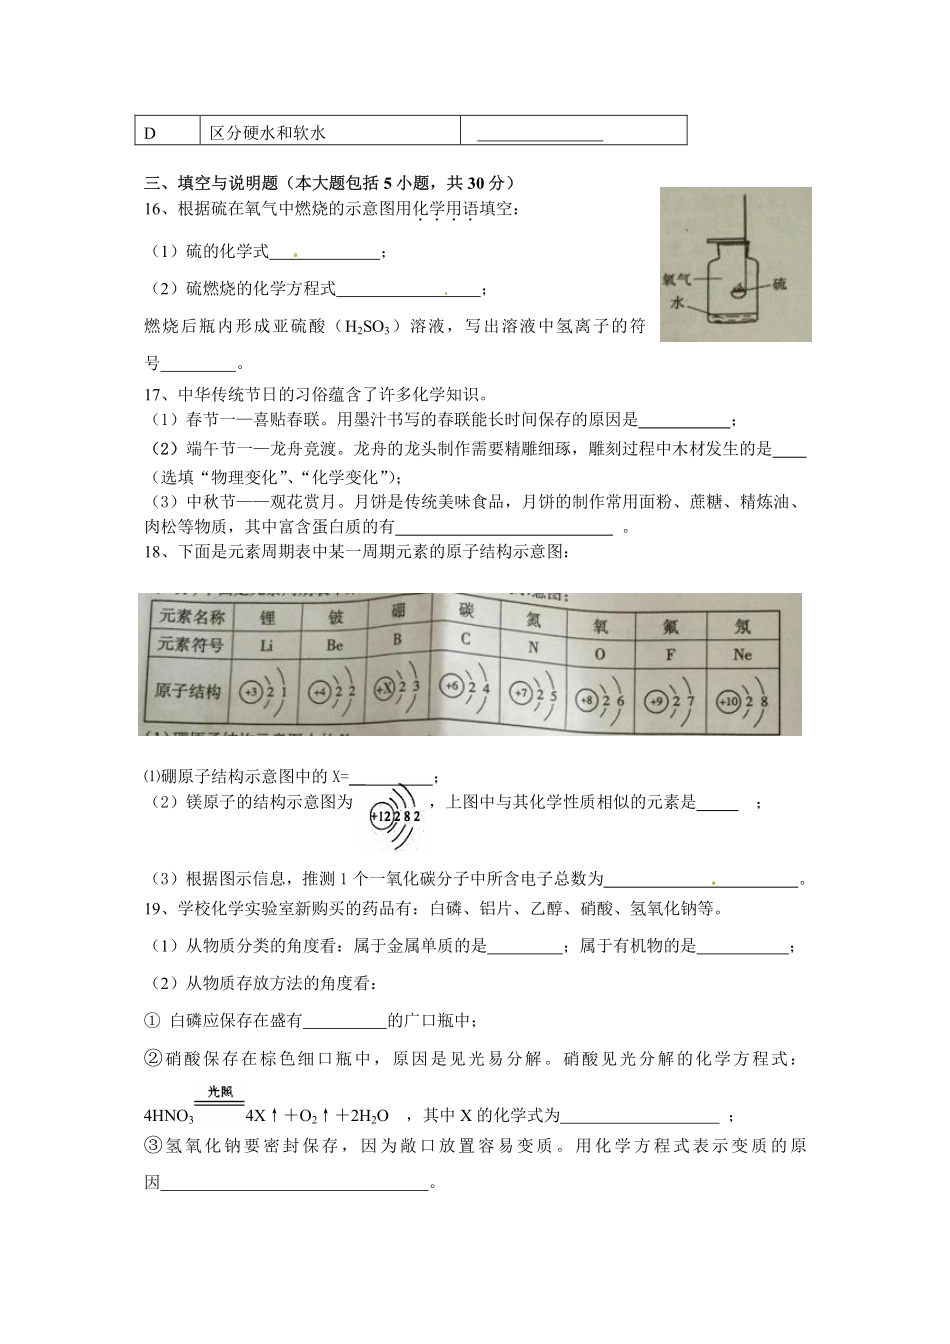 D 区分硬水和软水
三、填空与说明题（本大题包括 5 小题，共 30 分）
16、根据硫在氧气中燃烧的示意图用化学用语填空：
（1）硫的化学式____________；
（2）硫燃烧的化学方程式________________；
氧气
硫
水
燃烧后瓶内形成亚硫酸（H₂SO₃）溶液，写出溶液中氢离子的符
号________。
17、中华传统节日的习俗蕴含了许多化学知识。
（1）春节一—喜贴春联。用墨汁书写的春联能长时间保存的原因是__________；
（2）端午节一—龙舟竞渡。龙舟的龙头制作需要精雕细琢，雕刻过程中木材发生的是____
（选填“物理变化”、“化学变化”）；
（3）中秋节——观花赏月。月饼是传统美味食品，月饼的制作常用面粉、蔗糖、精炼油、
肉松等物质，其中富含蛋白质的有________________________。
18、下面是元素周期表中某一周期元素的原子结构示意图：
元素名称 锂 铍 硼 碳 氮 氧 氟 氖
元素符号 Li Be B C N O F Ne
原子结构 +3 2 1 +4 2 2 +X 2 3 +6 2 4 +7 2 5 +8 2 6 +9 2 7 +10 2 8
⑴硼原子结构示意图中的 X=_________；
（2）镁原子的结构示意图为 +12 2 8 2 ，上图中与其化学性质相似的元素是_____；
（3）根据图示信息，推测 1 个一氧化碳分子中所含电子总数为______________________。
19、学校化学实验室新购买的药品有：白磷、铝片、乙醇、硝酸、氢氧化钠等。
（1）从物质分类的角度看：属于金属单质的是_________；属于有机物的是___________；
（2）从物质存放方法的角度看：
① 白磷应保存在盛有__________的广口瓶中；
②硝酸保存在棕色细口瓶中，原因是见光易分解。硝酸见光分解的化学方程式：
4HNO₃ 光照 4X↑＋O₂↑＋2H₂O ，其中 X 的化学式为___________________；
③氢氧化钠要密封保存，因为敞口放置容易变质。用化学方程式表示变质的原
因________________________________。